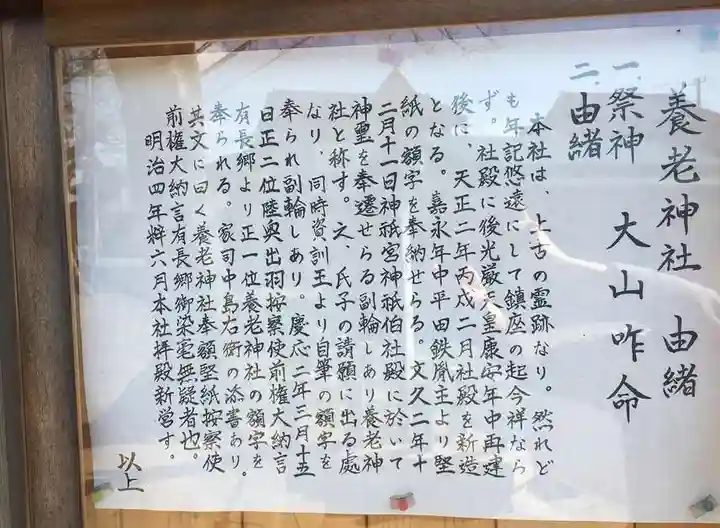 養老神社 由緒
一.祭神 大山咋命
二.由緒
本社は、上古の霊跡なり。然れど
も年記悠遠にして鎮座の起今祥なら
ず。社殿に後光厳天皇康安年中再建
後に、天正二年丙戌二月社殿を新造
となる。嘉永年中平田鉄胤主より堅
紙の額字を奉納せらる。文久二年十
二月十一日神祇宮神祇伯社殿に於いて
神霊を奉遷せらる副輪しあり養老神
社と称す。之、氏子の請願に出る處
なり、同時資訓王より自筆の額字を
奉られ副輪しあり。慶応二年三月十五
日正二位陸奥出羽按察使前権大納言
有長郷より正一位養老神社の額字を
奉られる。家司中島右衛の添書あり。
其文に曰く養老神社奉額堅紙按察使
前権大納言有長郷御染毫無疑者也。
明治四年粋六月本社拝殿新営す。
以上